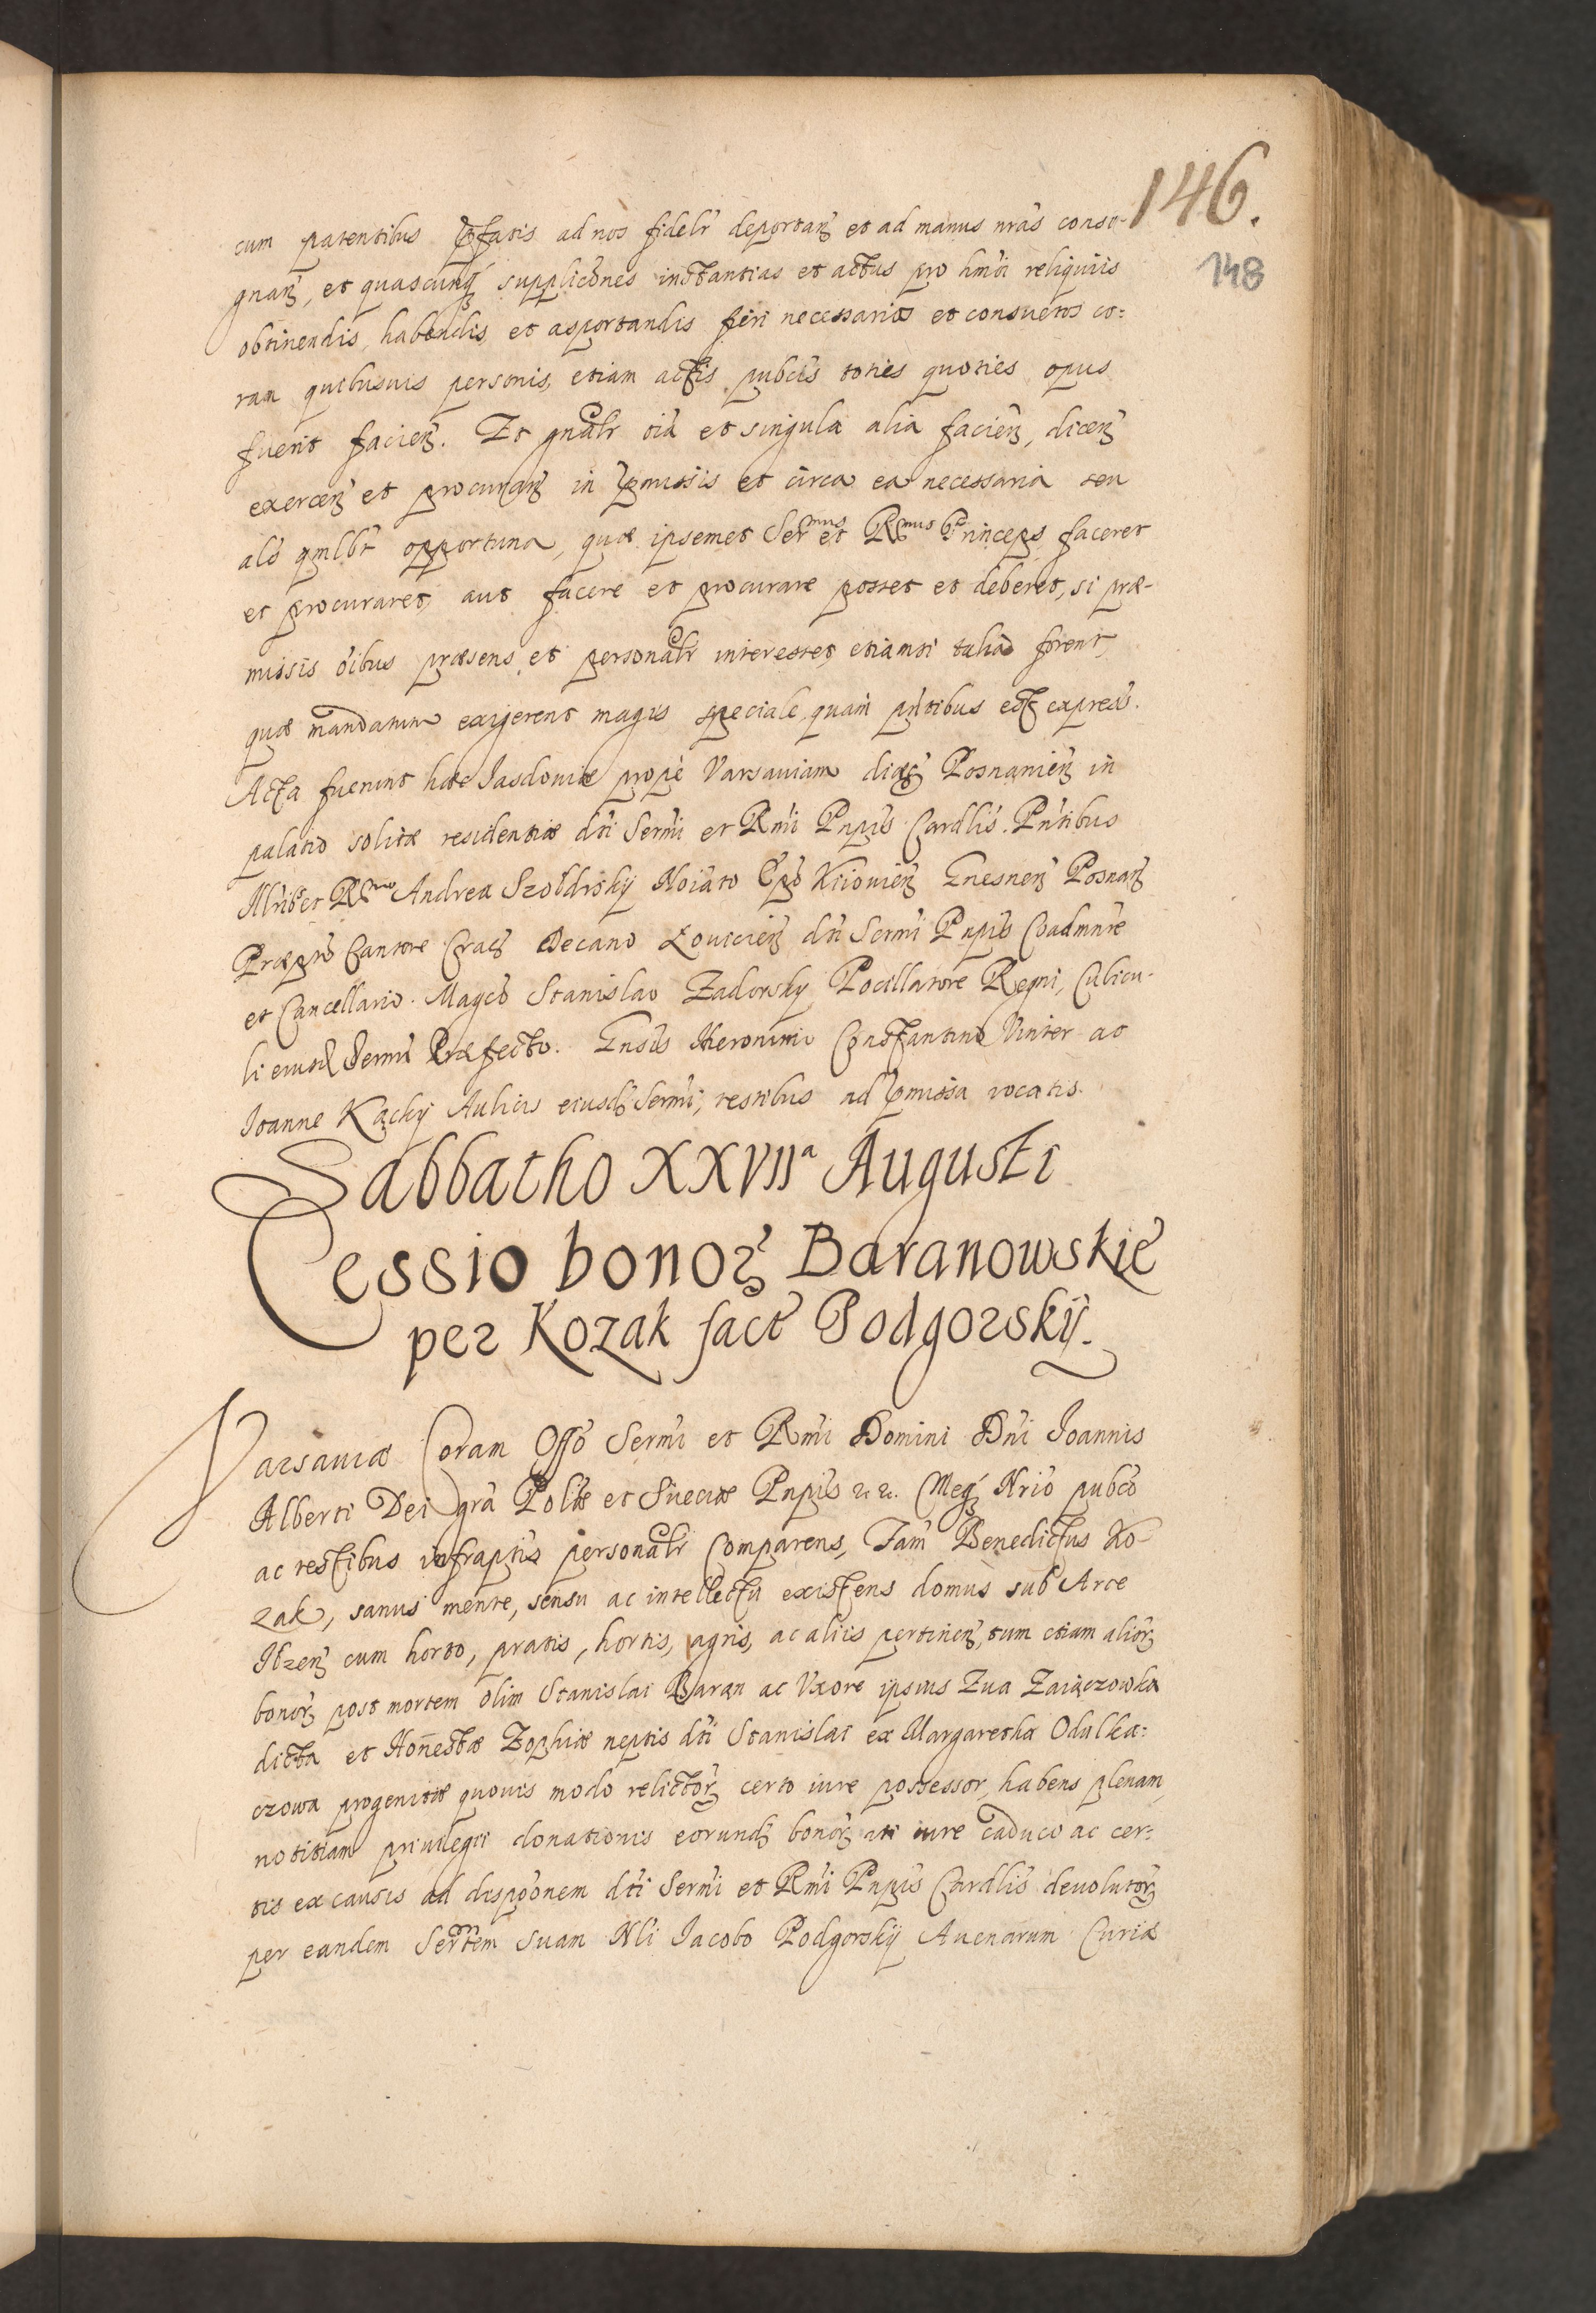 146.
148
cum patentibus pfatis ad nos fidelr deportan et ad manus nras consi-
gnan, et quascunq supplicones instantias et actus pro hmoi reliquiis
obtinendis, habendis, et asportandis fieri necessarios et consuetos co:
ram quibusuis personis, etiam actis pubcis toties quoties opus
fuerit facien. Et gnalr oia et singula alia facien, dicen
exercen et procuran in pmissis et circa ea necessaria seu
als qmlbt opportuna, quæ ipsemet Ser^mus et R^mus Princeps faceret
et procuraret, aut facere et procurare posset et deberet, si præ-
missis oibus præsens et personalr interesset, etiamsi talia forent,
quæ mandatum exigerent magis speciale quam pntibus est express.
Acta fuerunt hæc Iasdoviæ prope Varsaviam dioec Posnanien in
palatio solitæ residentiæ dti Sermi et Rmi Pnpis Cardlis. Pntibus
Illri et R^mo Andrea Szołdrsky Noiato Epo Kiiovien Gnesnen Posnan
Præpto Cantore Crac Decano Lovicien dti Sermi Pnpis Coadmnre
et Cancellario. Magco Stanislao Zadorsky Pocillatore Regni, Cubicu-
li eiusd Sermi Præfecto. Gnsis Hieronimo Constantino Vinter ac
Ioanne Kącky Aulicis eiusd Sermi, testibus ad pmissa vocatis.
Sabbatho XXVII^a Augusti
Cessio bonor Baranowskie
per Kozak fact Podgorskÿ.
Varsaviæ Coram Offo Sermi et Rmi Domini Dni Ioannis
Alberti Dei gra Polæ et Sueciæ Pnpis &c &c. Meq Nrio pubco
ac testibus infraptis personalr Comparens, Fam Benedictus Ko-
zak, sanus mente, sensu ac intellectu existens domus sub Arce
Ilzen cum horto, pratis, hortis, agris, ac aliis pertinen, tum etiam alior
bonor post mortem olim Stanislai Baran ac Uxore ipsius Eva Zaiączowka
dicta et Honestæ Zophiæ neptis dti Stanislai ex Margaretha Odulka:
czowa progenitæ quovis modo relictor certo iure possessor, habens plenam
notitiam privilegii donationis eorund bonor uti iure caduco ac cer:
tis ex causis ad dispoonem dti Sermi et Rmi Pnpis Cardlis devolutor
per eandem Sertem suam Nli Iacobo Podgorskÿ Avenarum Curiæ